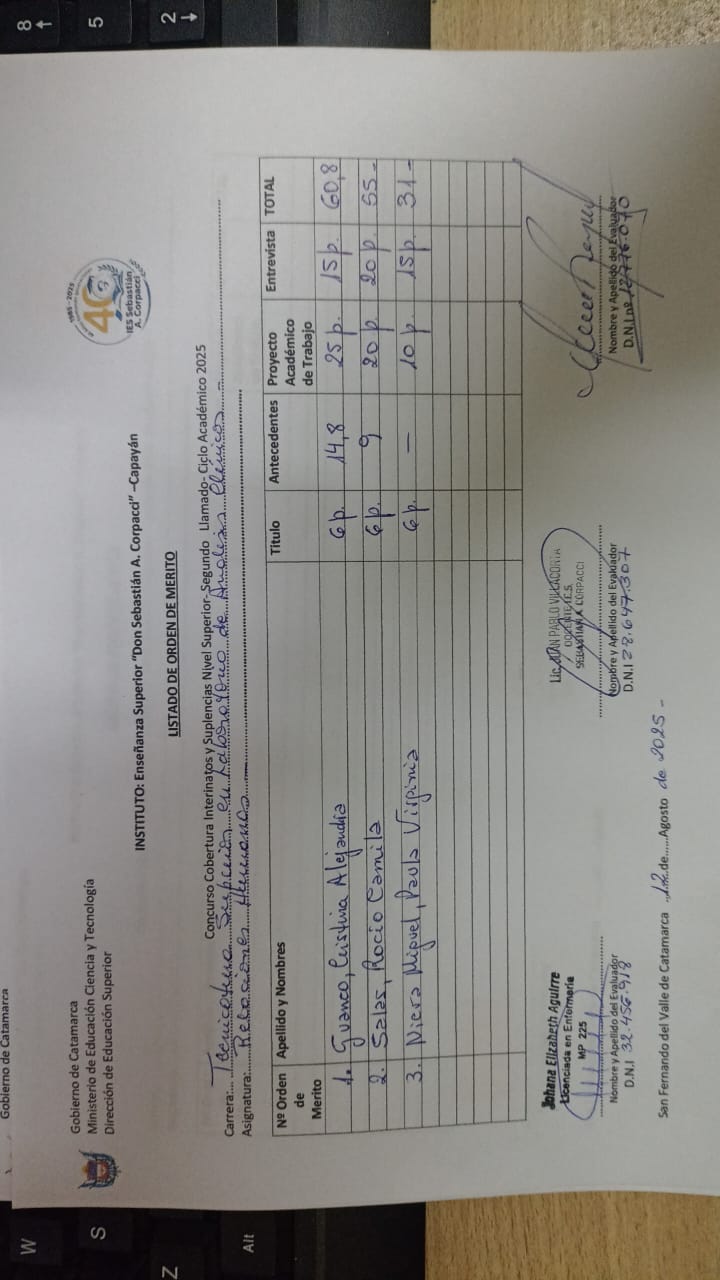 Gobierno de Catamarca
Gobierno de Catamarca
Ministerio de Educación Ciencia y Tecnología
Dirección de Educación Superior
1985 - 2025
40
IES Sebastián
A. Corpacci
INSTITUTO: Enseñanza Superior "Don Sebastián A. Corpacci" –Capayán
LISTADO DE ORDEN DE MERITO
Concurso Cobertura Interinatos y Suplencias Nivel Superior-Segundo Llamado- Ciclo Académico 2025
Carrera:... Tecnicatura Superior en Laboratorio de Análisis Clínicos
Asignatura:... Relaciones Humanas
Nº Orden de Merito Apellido y Nombres Titulo Antecedentes Proyecto Académico de Trabajo Entrevista TOTAL
1. Guanco, Cristina Alejandra 6 p. 14,8 25 p. 15 p. 60,8
2. Salas, Rocio Camila 6 p. 9 20 p. 20 p. 55 -
3. Niera Miguel, Paula Virginia 6 p. — 10 p. 15 p. 31 -
Johana Elizabeth Aguirre
Licenciada en Enfermería
MP 225
Nombre y Apellido del Evaluador
D.N.I 32.456.918
Lic. JUAN PABLO VILLACORTA
DOCENTE I.E.S.
SEBASTIAN A. CORPACCI
Nombre y Apellido del Evaluador
D.N.I 28.647.307
Nombre y Apellido del Evaluador
D.N.I nº
San Fernando del Valle de Catamarca ..12..de......Agosto de 2025 -
8
5
2
W
S
Z
Alt